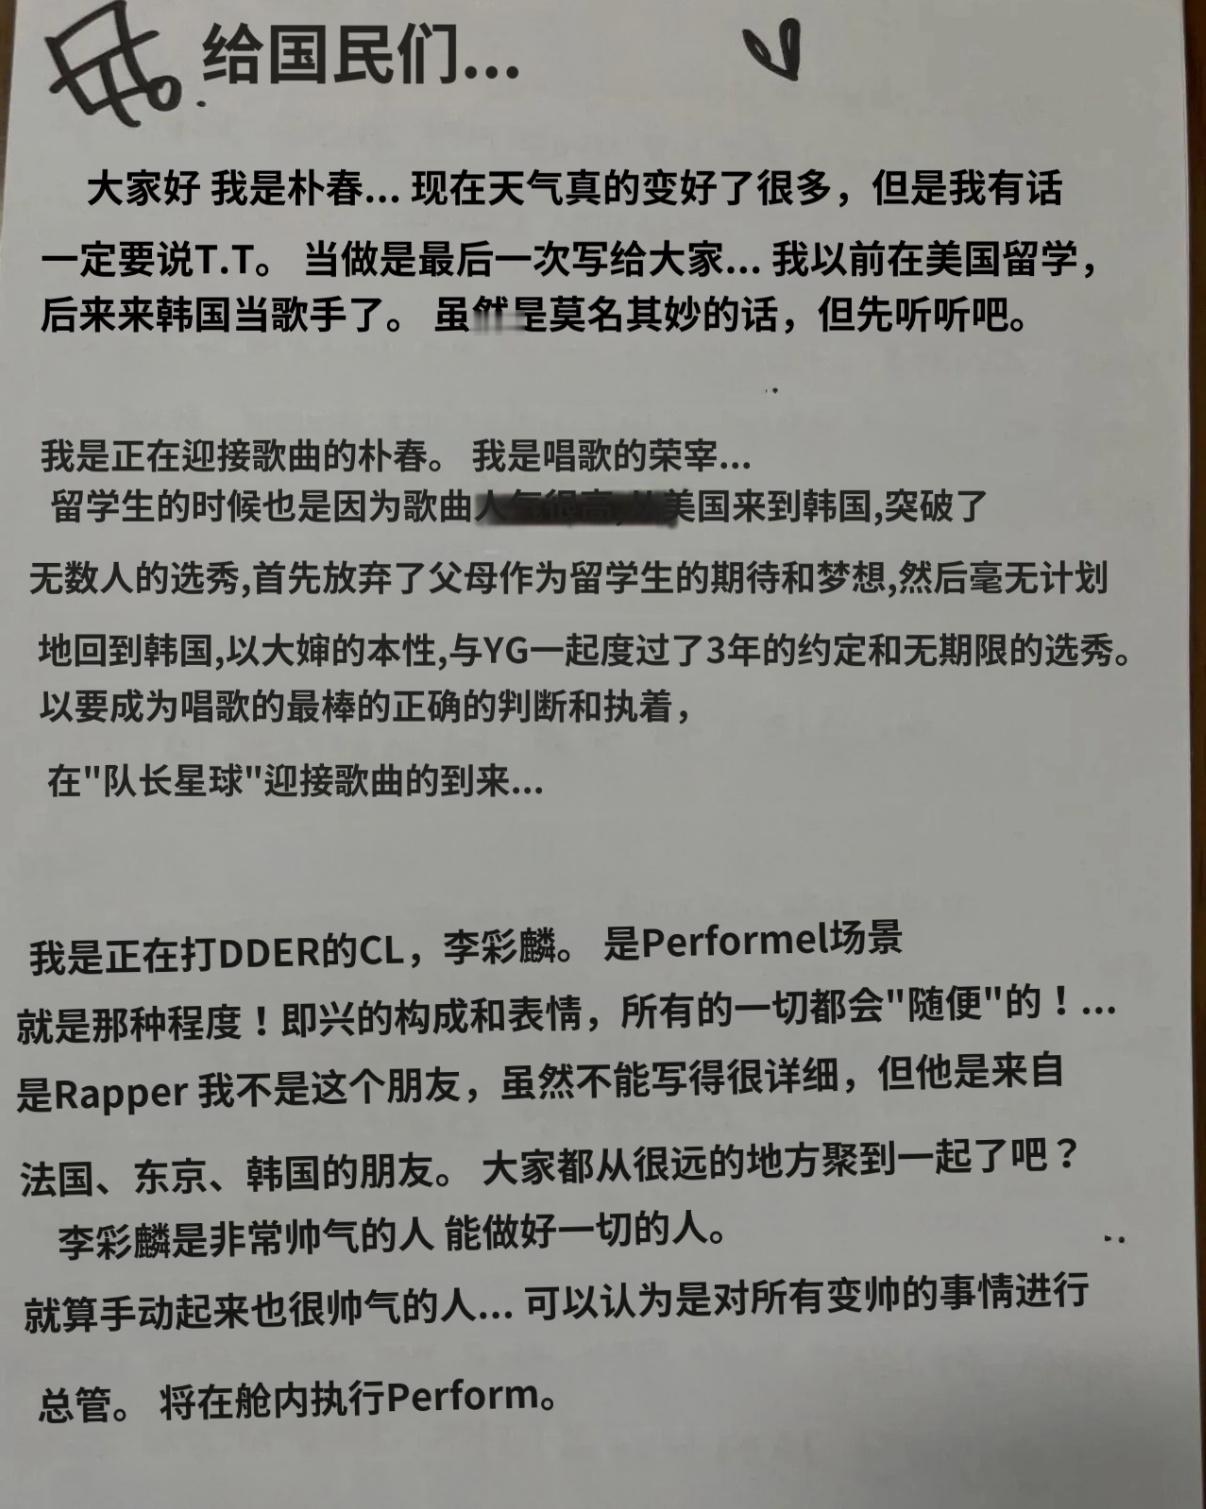 给国民们...
大家好 我是朴春... 现在天气真的变好了很多，但是我有话
一定要说T.T。 当做是最后一次写给大家... 我以前在美国留学，
后来来韩国当歌手了。 虽然是莫名其妙的话，但先听听吧。
我是正在迎接歌曲的朴春。 我是唱歌的荣宰...
留学生的时候也是因为歌曲人气很高,从美国来到韩国,突破了
无数人的选秀,首先放弃了父母作为留学生的期待和梦想,然后毫无计划
地回到韩国,以大婶的本性,与YG一起度过了3年的约定和无期限的选秀。
以要成为唱歌的最棒的正确的判断和执着，
在"队长星球"迎接歌曲的到来...
我是正在打DDER的CL，李彩麟。 是Performel场景
就是那种程度！即兴的构成和表情，所有的一切都会"随便"的！...
是Rapper 我不是这个朋友，虽然不能写得很详细，但他是来自
法国、东京、韩国的朋友。 大家都从很远的地方聚到一起了吧？
李彩麟是非常帅气的人 能做好一切的人。
就算手动起来也很帅气的人... 可以认为是对所有变帅的事情进行
总管。 将在舱内执行Perform。